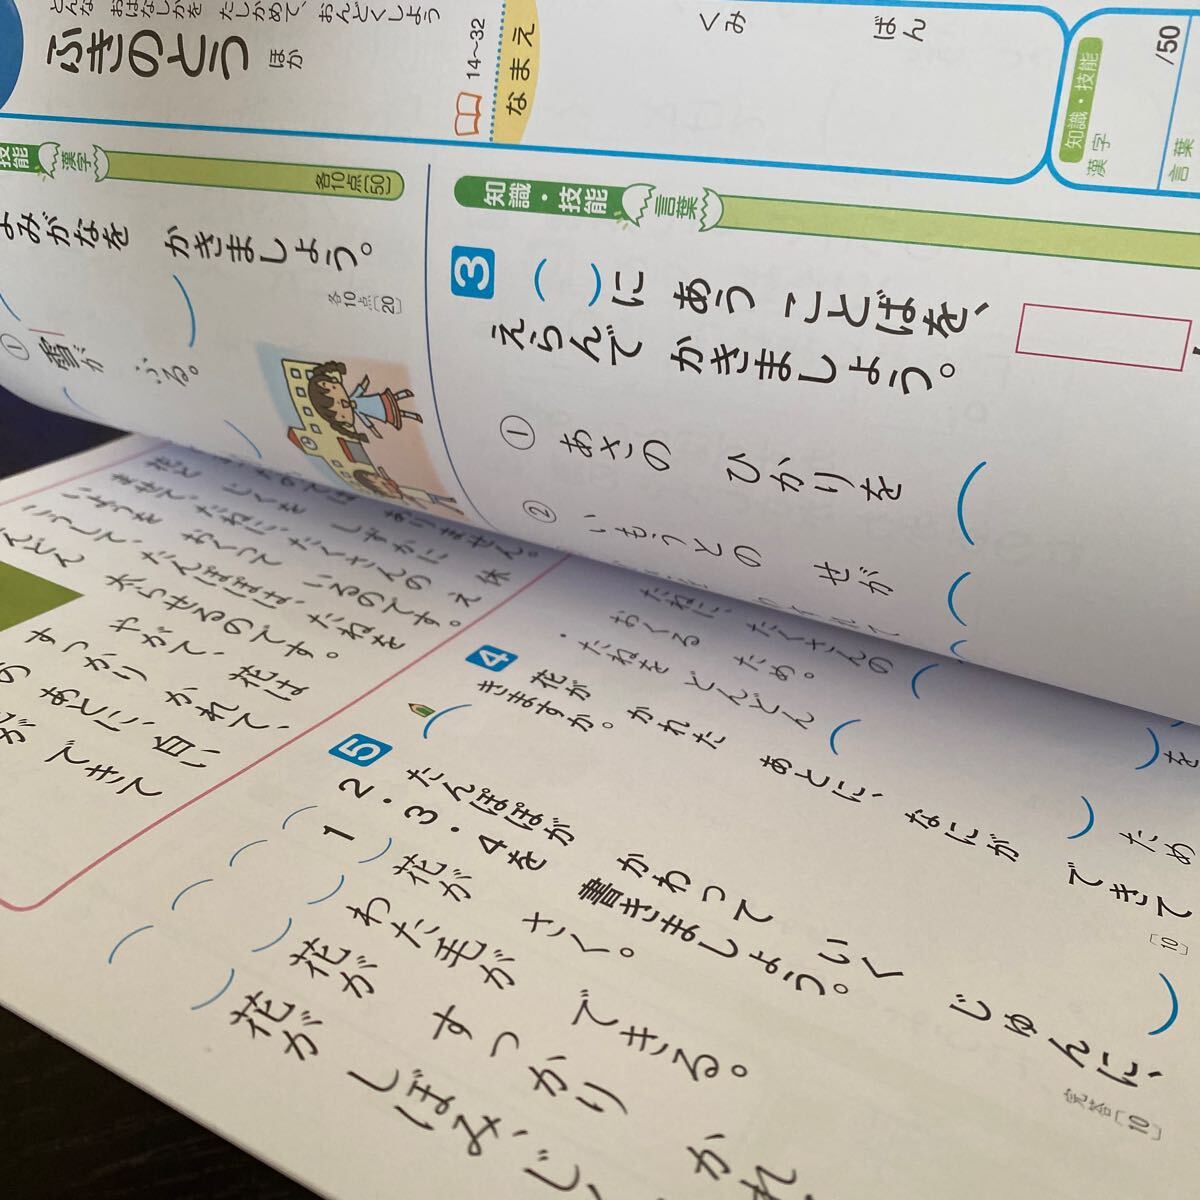 どんな おはなしかを たしかめて、おんどくしよう
ふきのとう ほか
14~32
なまえ
くみ
ばん
知識・技能
漢字
/50
言葉
技能
漢字
各10点〔50〕
よみがなを かきましょう。
各10点〔20〕
① 雪が ふる。
知識・技能
言葉
3 ( )に あう ことばを、
えらんで かきましょう。
① あさの ひかりを
② いもうとの せが
ありません。
しずかに
ませて、たねに、たくさんの
おくって いるのです。
こうして、たんぽぽは、たねを
太らせるのです。
やがて、花は
すっかり かれて、
あとに、白い
できて
たねに、たくさんの
おくる ため。
・たねを どんどん
ため
4 花が かれた あとに、なにが できて
きますか。
〔10〕
5 たんぽぽが かわって いく じゅんに、
2・3・4を 書きましょう。
完答〔10〕
1 花が さく。
わた毛が できる。
花が すっかり かれ
花が しぼみ、じ